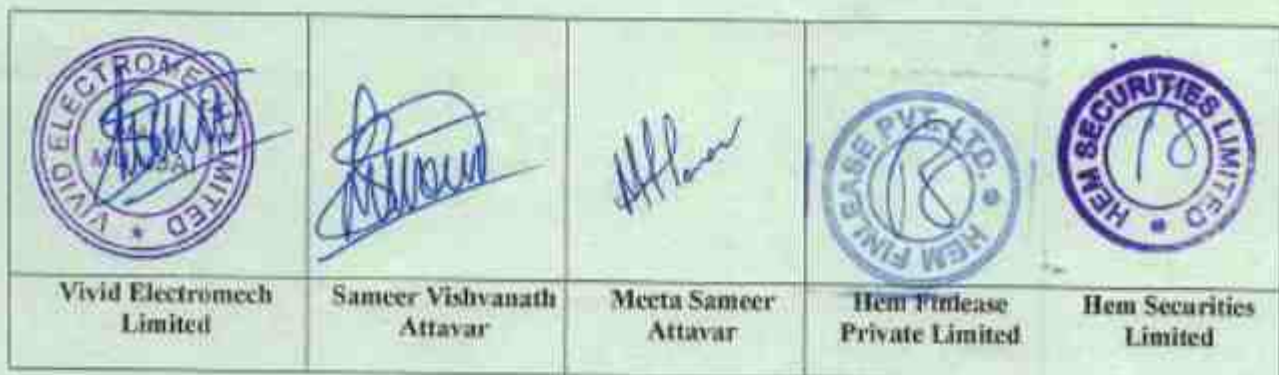 VIVID ELECTROMECH LIMITED
MUMBAI
HEM FINLEASE PVT. LTD.
HEM SECURITIES LIMITED
18
18
Vivid Electromech
Limited
Sameer Vishvanath
Attavar
Meeta Sameer
Attavar
Hem Finlease
Private Limited
Hem Securities
Limited